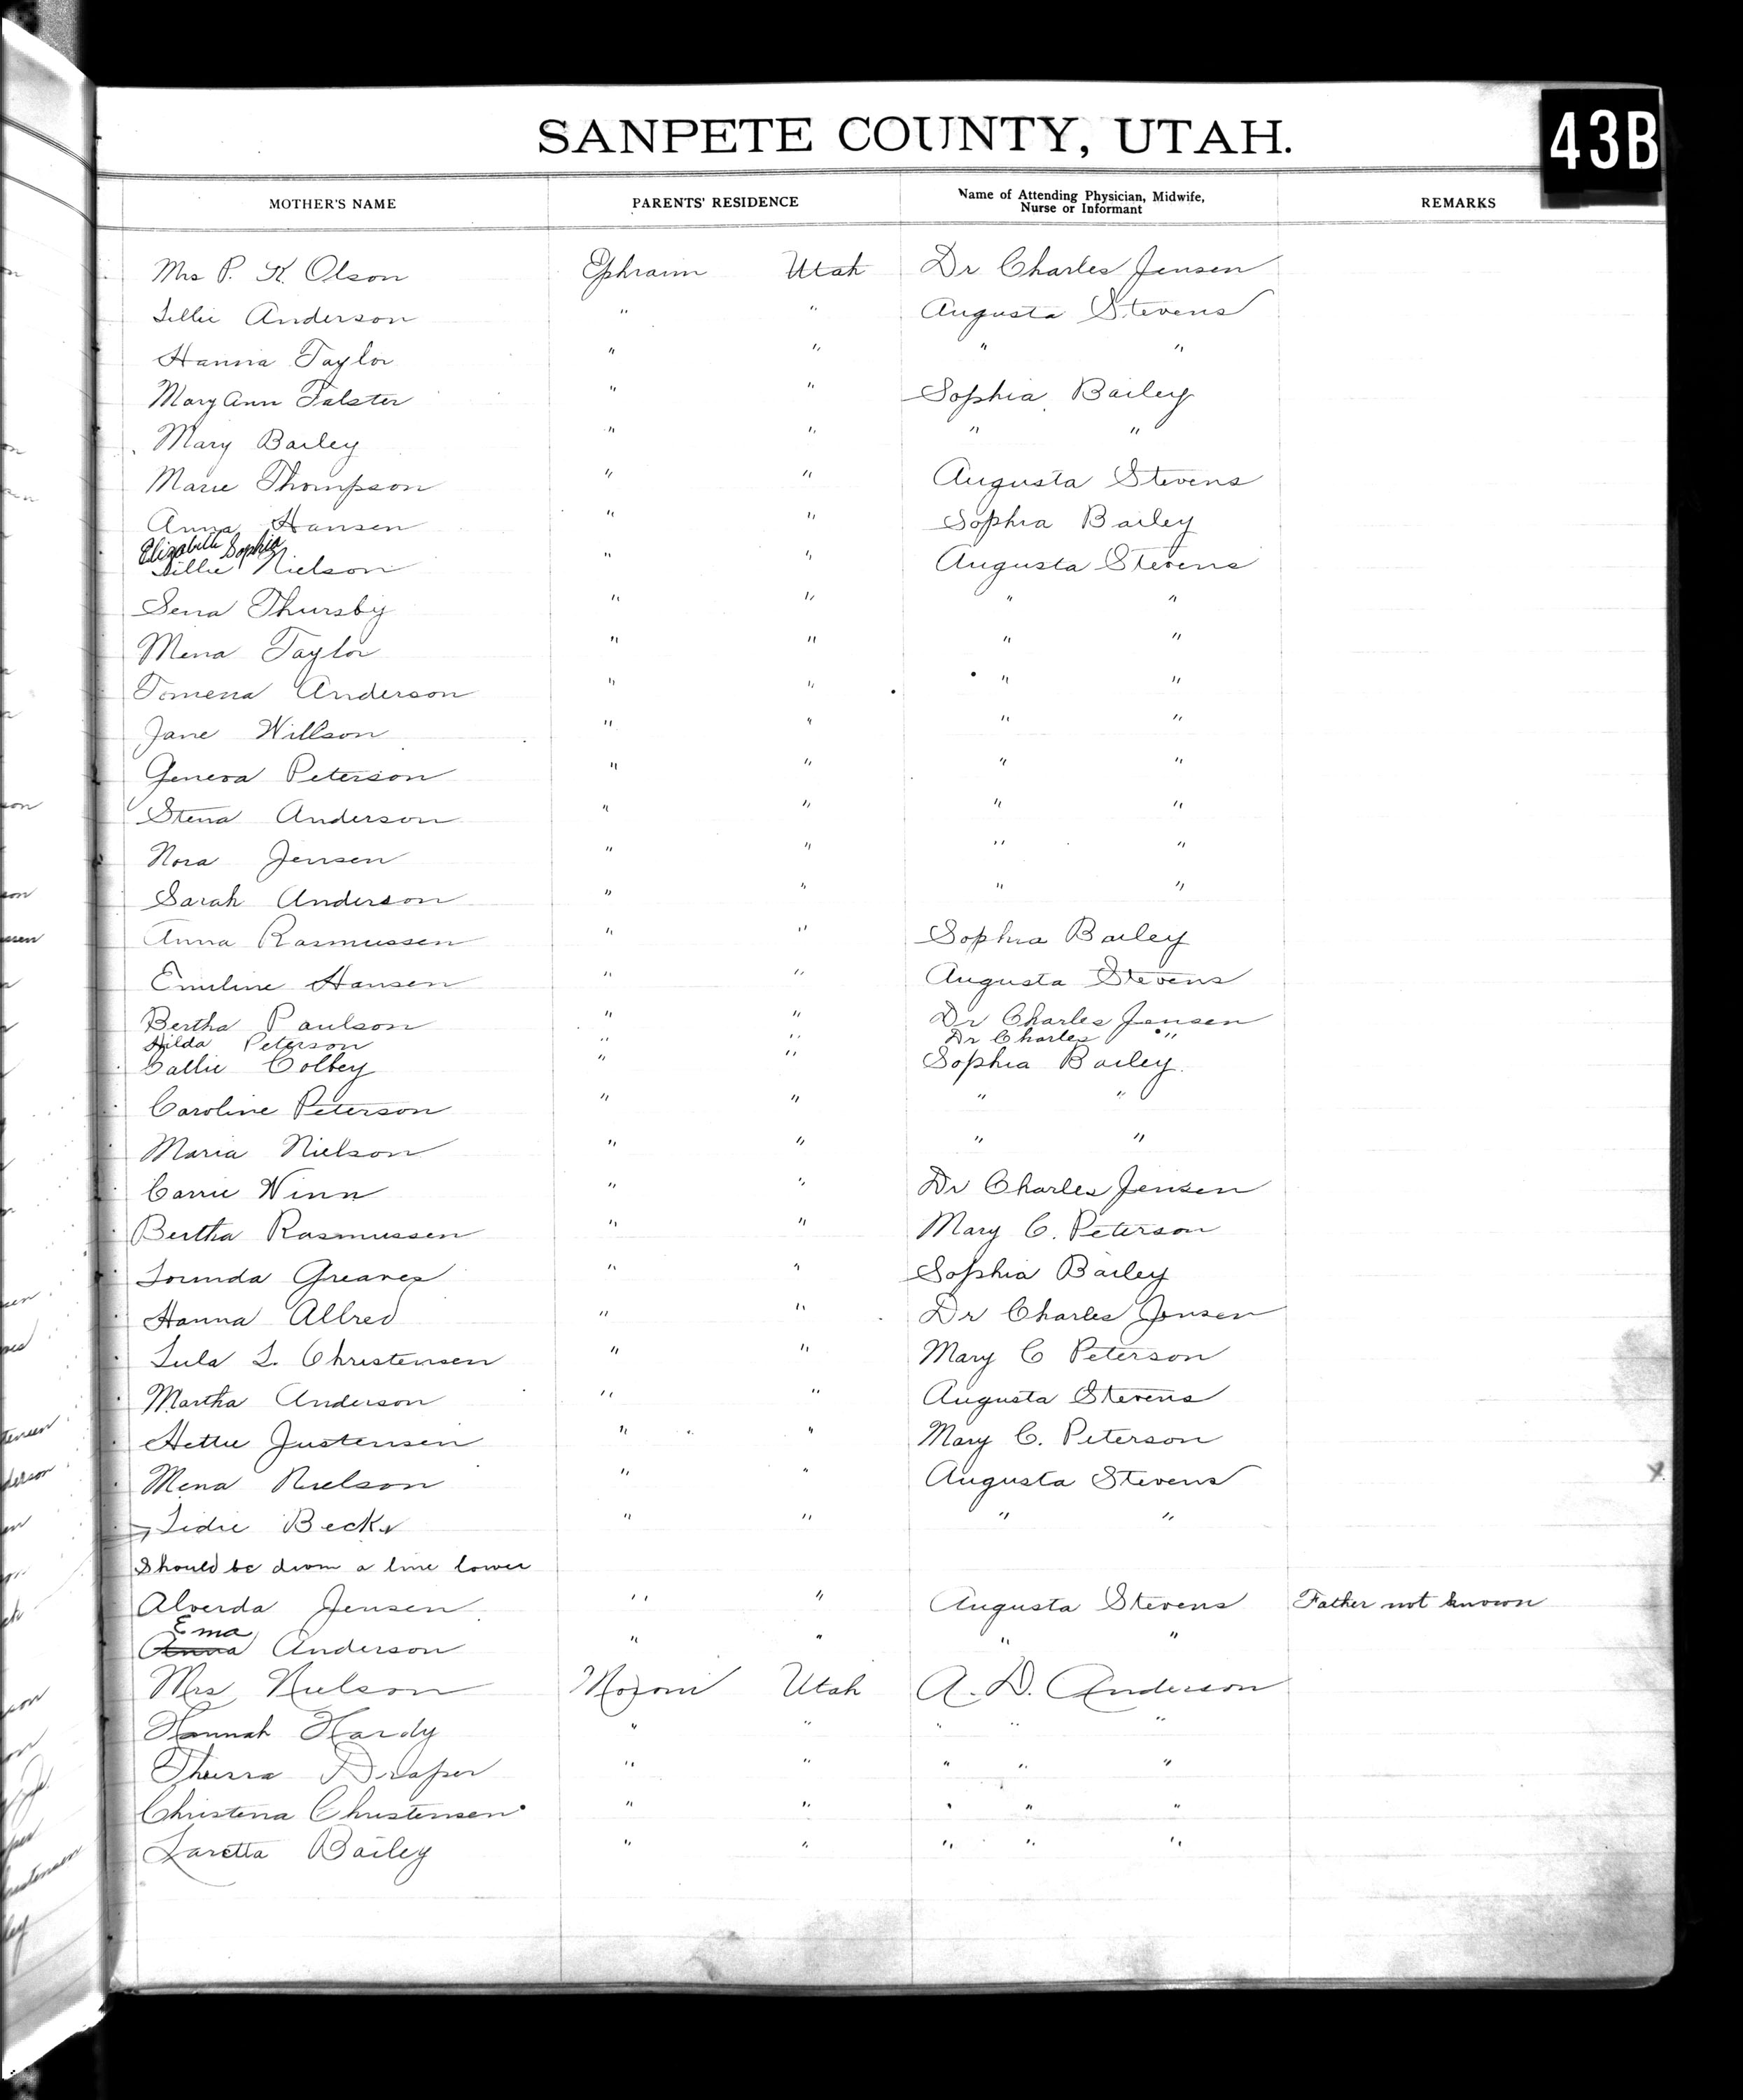 SANPETE COUNTY, UTAH. 43B
MOTHER'S NAME PARENTS' RESIDENCE Name of Attending Physician, Midwife, Nurse or Informant REMARKS
Mrs P. K. Olson Ephraim Utah Dr Charles Jensen
Lillie Anderson " " Augusta Stevens
Hanna Taylor " " " "
Mary Ann Falster " " Sophia Bailey
Mary Bailey " " " "
Marie Thompson " " Augusta Stevens
Anna Hansen " " Sophia Bailey
Elizabeth Sophia
Lillie Nielson " " Augusta Stevens
Sena Thursby " " " "
Mena Taylor " " " "
Tomena Anderson " " " "
Jane Willson " " " "
Geneva Peterson " " " "
Stena Anderson " " " "
Nora Jensen " " " "
Sarah Anderson " " " "
Anna Rasmussen " " Sophia Bailey
Emiline Hansen " " Augusta Stevens
Bertha Paulson " " Dr Charles Jensen
Hilda Peterson " " Dr Charles "
Callie Colbey " " Sophia Bailey
Caroline Peterson " " " "
Maria Nielson " " " "
Carrie Winn " " Dr Charles Jensen
Bertha Rasmussen " " Mary C. Peterson
Lorinda Greaves " " Sophia Bailey
Hanna Allred " " Dr Charles Jensen
Lula L. Christensen " " Mary C Peterson
Martha Anderson " " Augusta Stevens
Hettie Justensen " " Mary C. Peterson
Mena Nielson " " Augusta Stevens
Lidie Beck " " " "
Should be down a line lower
Alverda Jensen " " Augusta Stevens Father not known
Ema
Anna Anderson " " " "
Mrs Nielson Moroni Utah A. D. Anderson
Hannah Hardy " " " " "
Draper " " " " "
Christena Christensen " " " " "
Laretta Bailey " " " " "